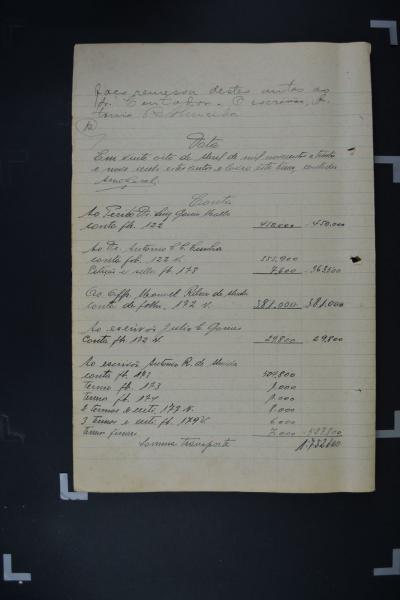 faço remessa destes autos ao
Dr. Contador. O escrivão, An
tonio R. Almeida
Data
Em vinte oito de Abril de mil novecentos e trinta
e nove recebi estes autos e lavro este termo
Conta
Ao Perito Dr. Luiz
conta fls. 122 450.000 - 450.000
Ao Dr. Antonio C. C. Cunha
conta fls. 122 v. 355.900
Petição e sello fl. 173 7.600 - 363.500
Ao Offr. Manoel Ribas de
conta de folhas. 172 v. 381.000 - 381.000
Ao escrivão Julio C. Gomes
Conta fls. 172 v. 29.800 29.800
Ao escrivão Antonio R. de Almeida
conta fl. 172 504.800
termo fl. 173 1.000
termo fl. 174 1.000
2 termos e 172 v. 8.000
3 termos e fl. 174 v. 6.000
termo 7.000 - 527.800
Somma transporte 1:752.600